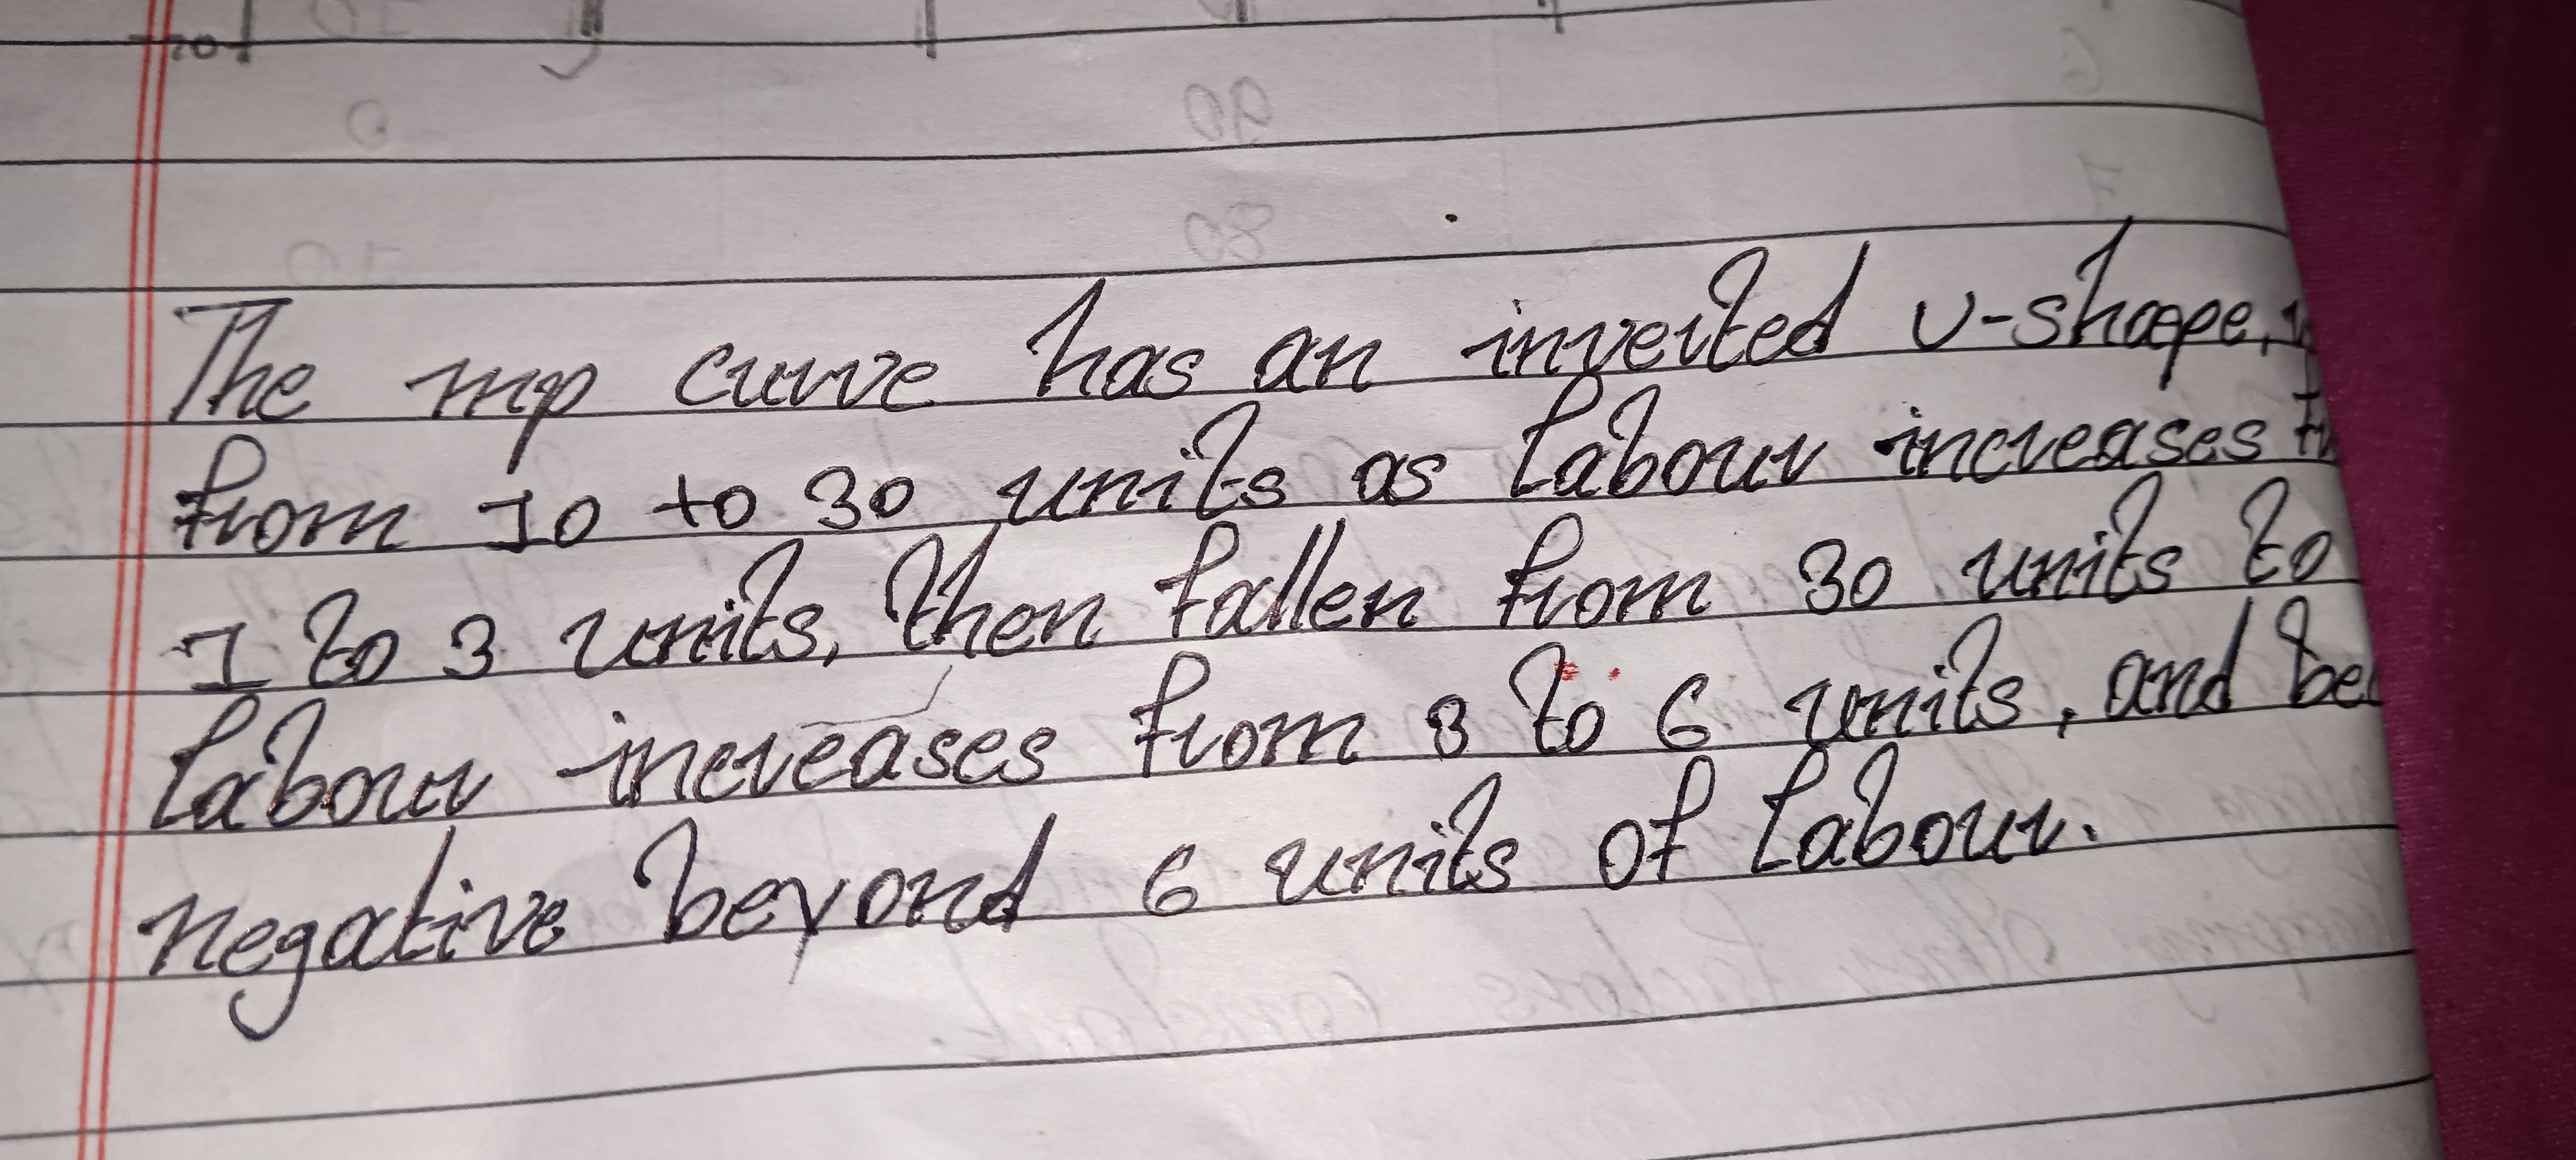 20
The mp curve has an inverted U-shape,
from 10 to 30 units as labour increases
1 to 3 units, then fallen from 30 units to
labour increases from 3 to 6 units, and
negative beyond 6 units of labour.